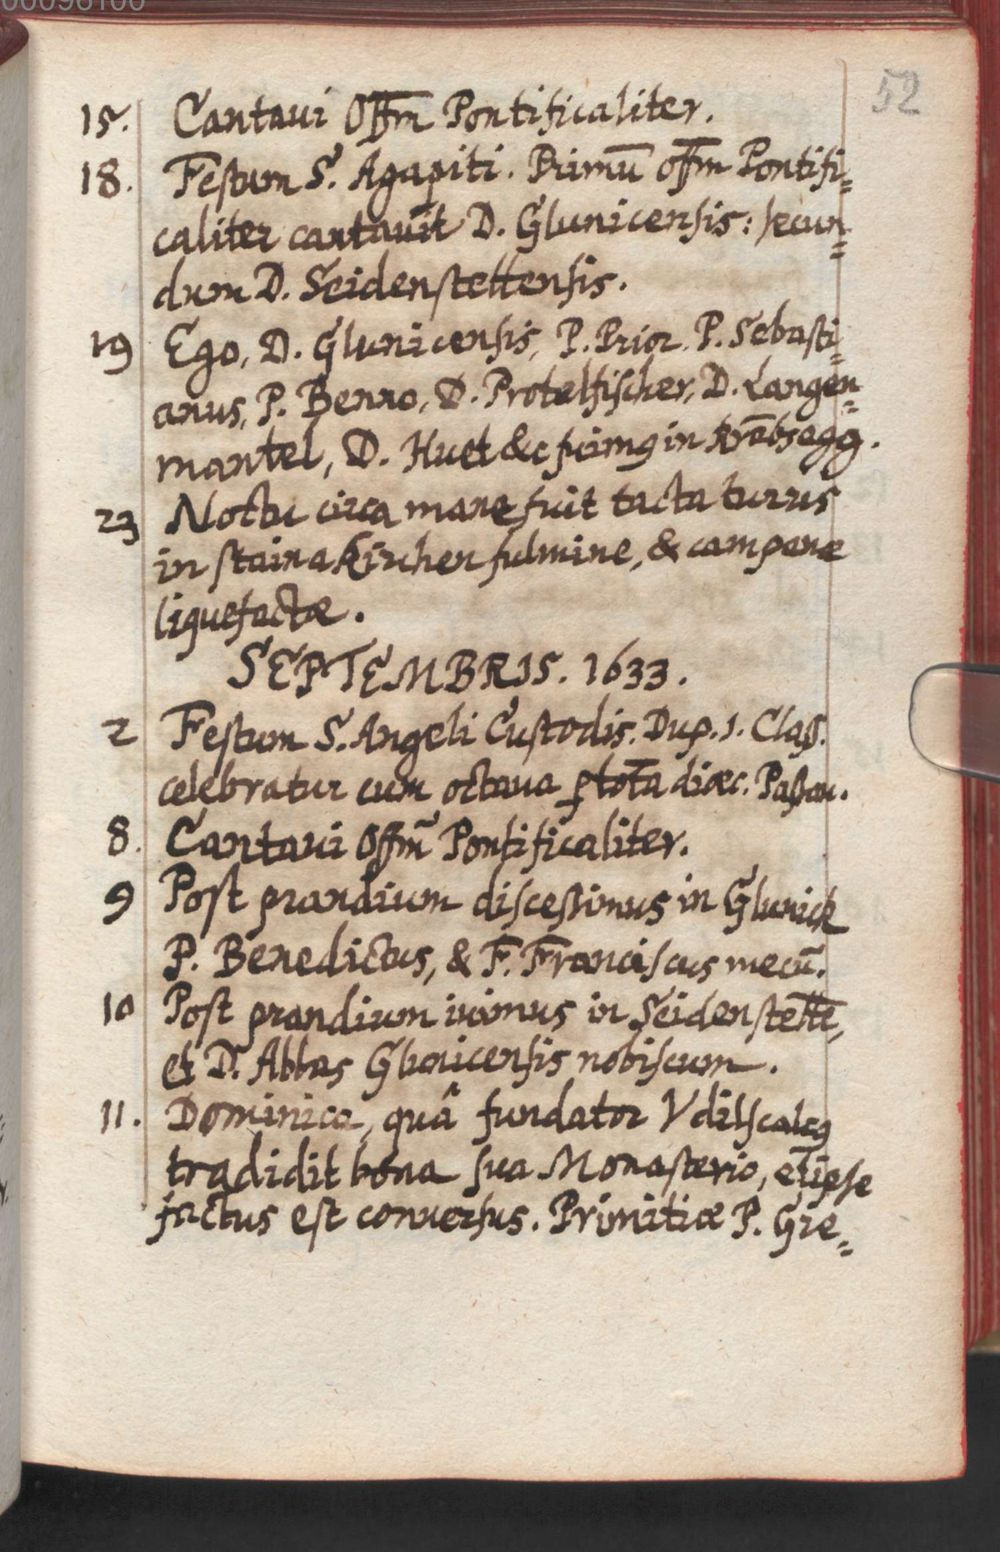 00096100
52
15. Cantaui Offm̄ Pontificaliter.
18. Festum S. Agapiti. Primū offm̄ Pontifi=
caliter cantauit D. Glunicensis: secun=
dum D. Seidenstettensis.
19 Ego, D. Glunicensis, P. Prior, P. Sebasti=
anus, P. Benno, D. Protelfischer, D. Langen=
mantel, D. Huet &c fuimꝰ in Krēbsegg.
23 Noctu circa mane fuit tacta turris
in stainakirchen fulmine, & campanæ
liquefactæ.
SEPTEMBRIS. 1633.
2 Festum S. Angeli Custodis. Dup. 1. Claß.
celebratur cum octaua ꝑ totā diœc. Paßau.
8. Cantaui Offm̄ Pontificaliter.
9 Post prandium discessimus in Glunick
P. Benedictus, & F. Franciscus mecū.
10 Post prandium iuimus in Seidenstettē,
et D. Abbas Glunicensis nobiscum.
11. Dominica, quâ fundator Vdilscalcꝰ
tradidit bona sua Monasterio, et ipse
factus est conuersus. Primitiæ P. Gre=